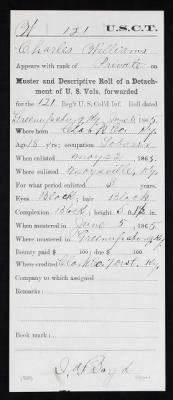 W 121 U.S.C.T.
Charles Williams
Appears with rank of Private on
Muster and Descriptive Roll of a Detach-
ment of U. S. Vols. forwarded
for the 121 Reg't U. S. Col'd Inf. Roll dated
Greenupsburg Ky June 5, 1865.
Where born Ky.
Age 18 yrs; occupation Laborer
When enlisted May 22, 1865
Where enlisted Maysville, Ky.
For what period enlisted 3 years.
Eyes Black, hair Black
Complexion Black, height 5 ft. in.
When mustered in June 5, 1865
Where mustered in Greenupsburg Ky
Bounty paid $ 100; due $ 100
Where credited Ky
Company to which assigned
Remarks:
Book mark:
Boyd